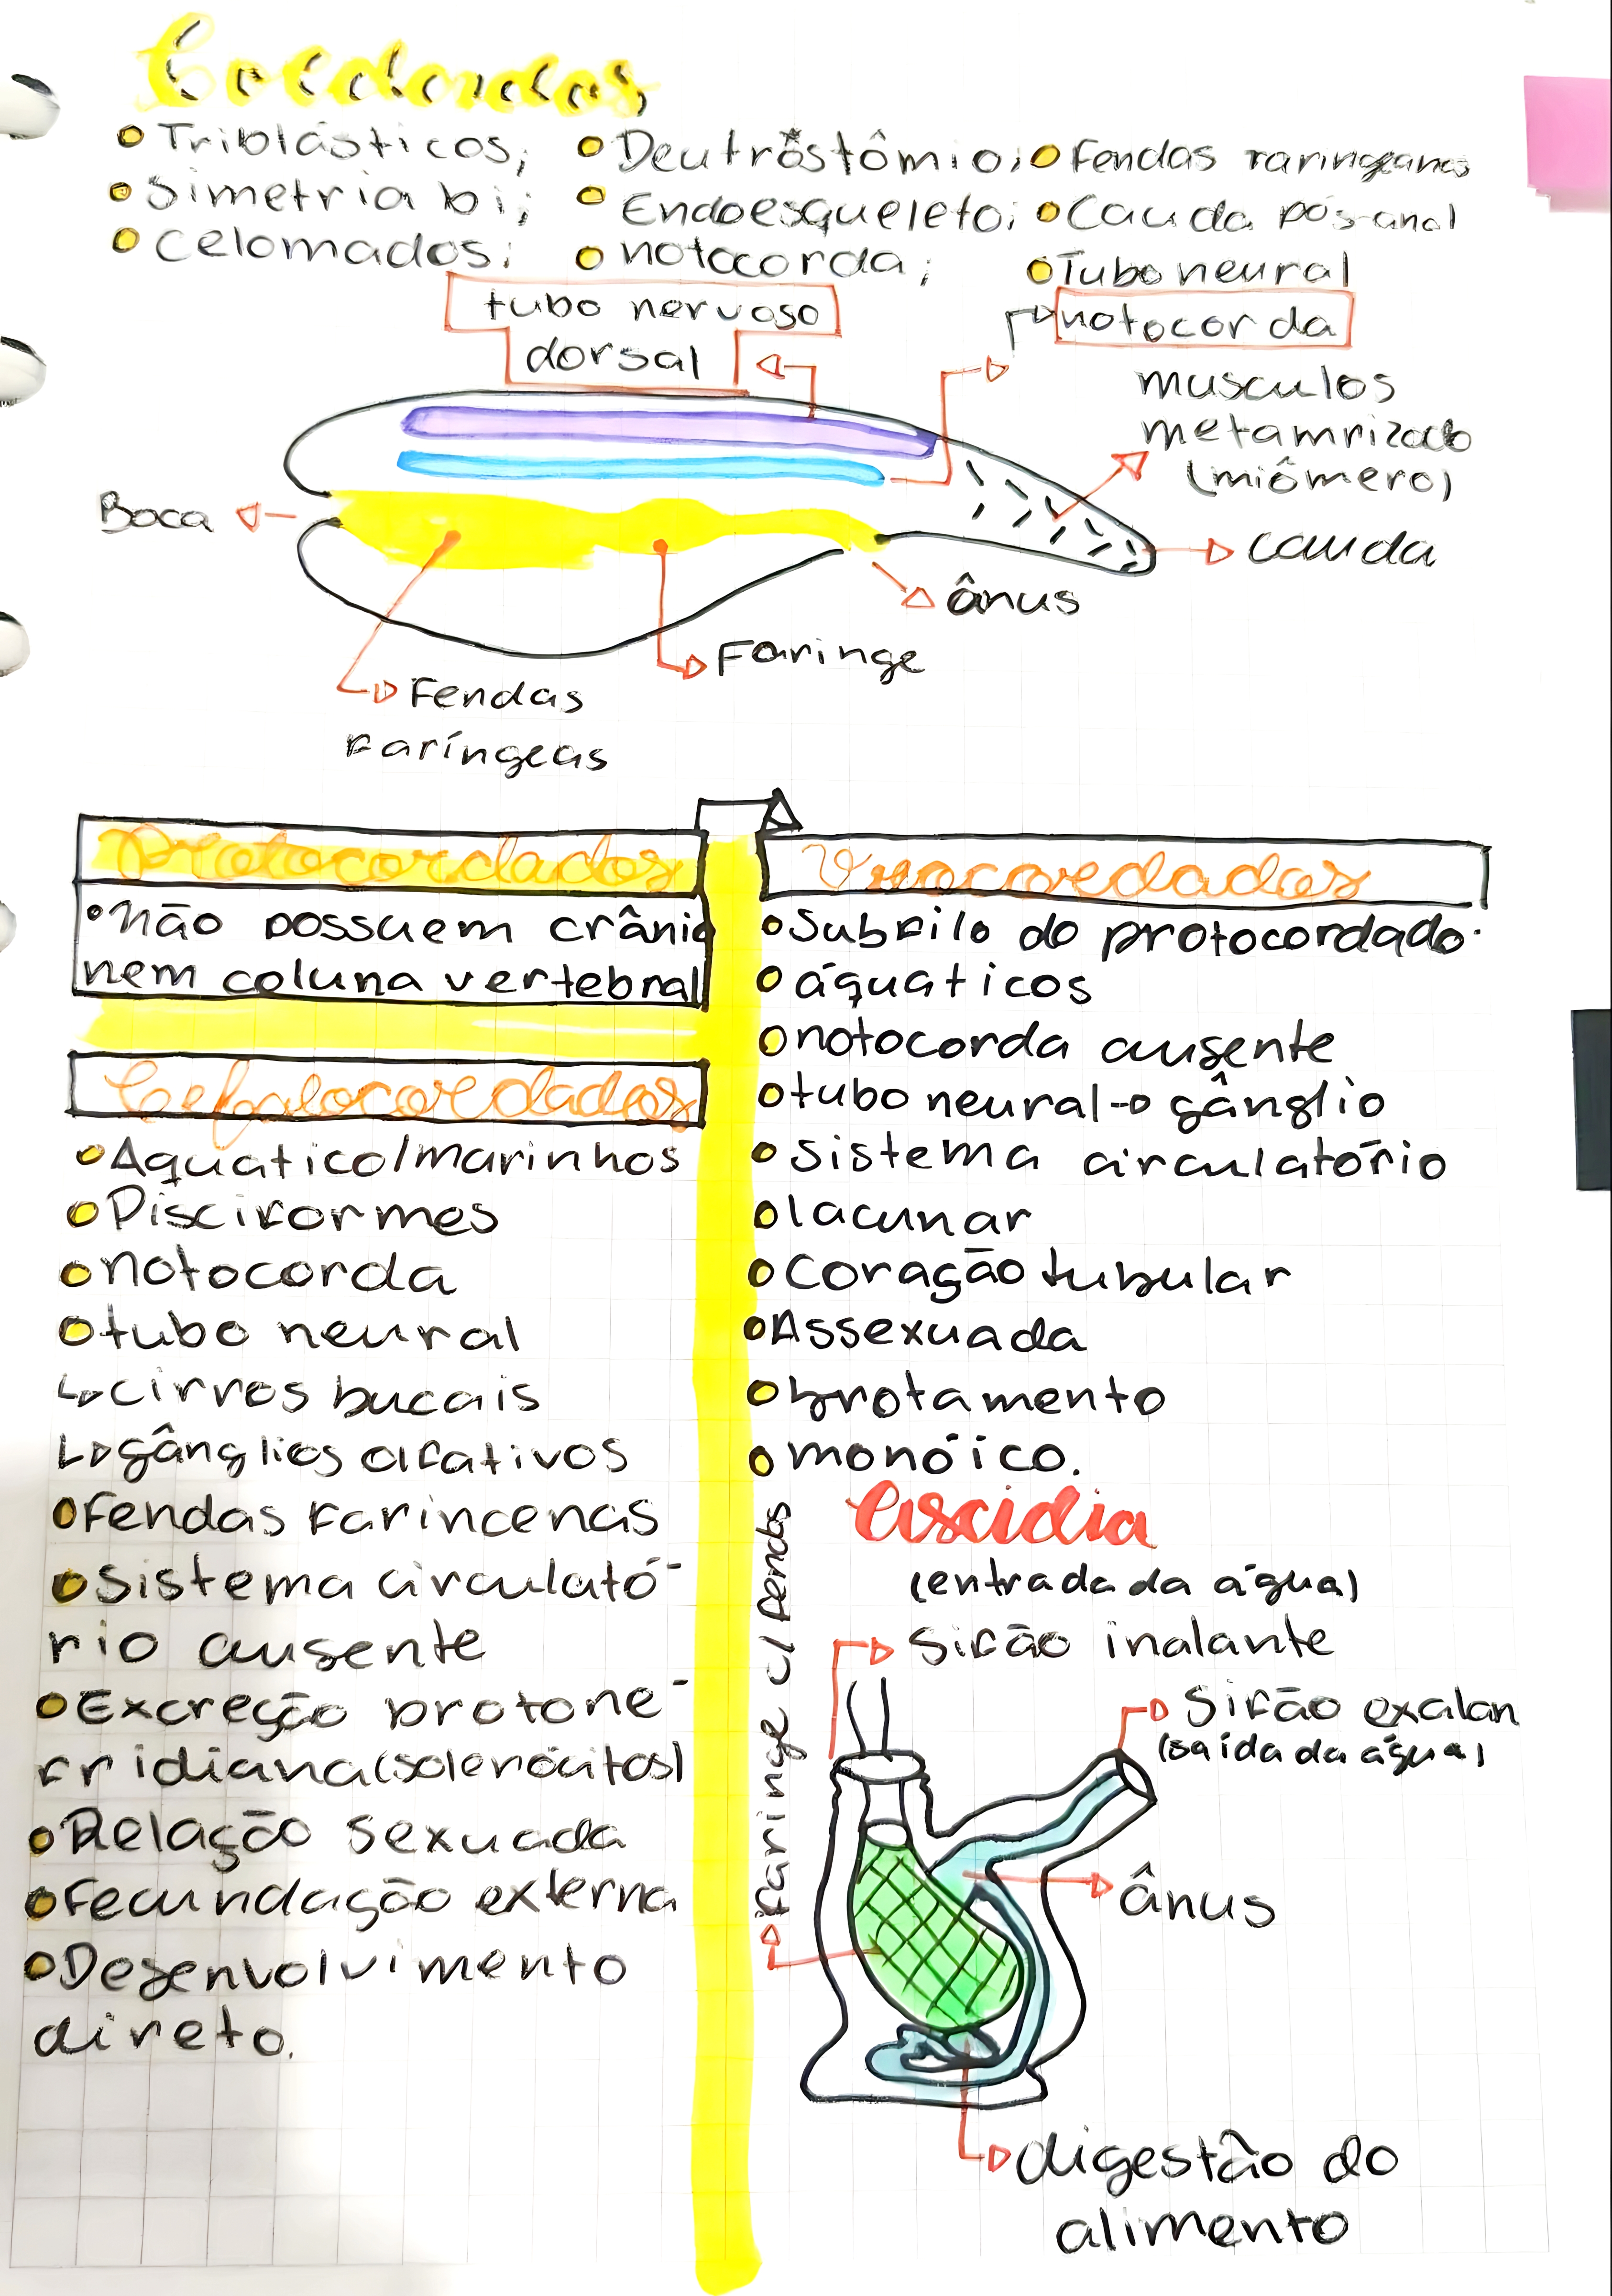 Cordados
Triblásticos;
Simetria bi;
Celomados;
Deutrostômio;
Endoesqueleto;
notocorda;
Fendas Faringeanas
Cauda pós-anal
Tubo neural
tubo nervoso
dorsal
notocorda
musculos
metamrizado
(miômero)
Boca
cauda
ânus
Faringe
Fendas
Faríngeas
Protocordados
Não possuem crânio
nem coluna vertebral
Cefalocordados
Aquatico/marinhos
Pisciformes
notocorda
tubo neural
cirros bucais
gânglios olfativos
Fendas Farincenas
Sistema circulató-
rio ausente
Excreção protone-
fridiana (solenócitos)
Relação sexuada
Fecundação externa
Desenvolvimento
direto.
Urocordados
Subfilo do protocordado.
áquaticos
notocorda ausente
tubo neural → gânglio
Sistema circulatório
lacunar
Coração tubular
Assexuada
brotamento
monóico.
Ascidia
(entrada da água)
Sifão inalante
Sifão exalan
(saída da água)
Faringe c/ fendas
ânus
digestão do
alimento